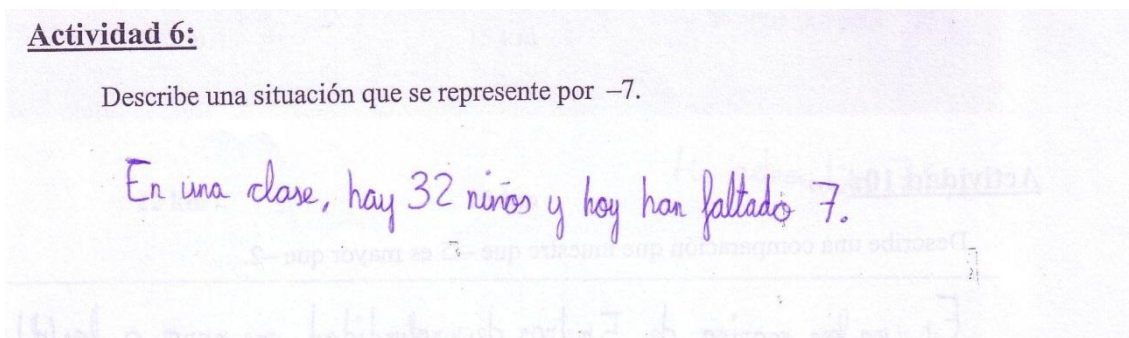 Actividad 6:
Describe una situación que se represente por –7.
En una clase, hay 32 niños y hoy han faltado 7.